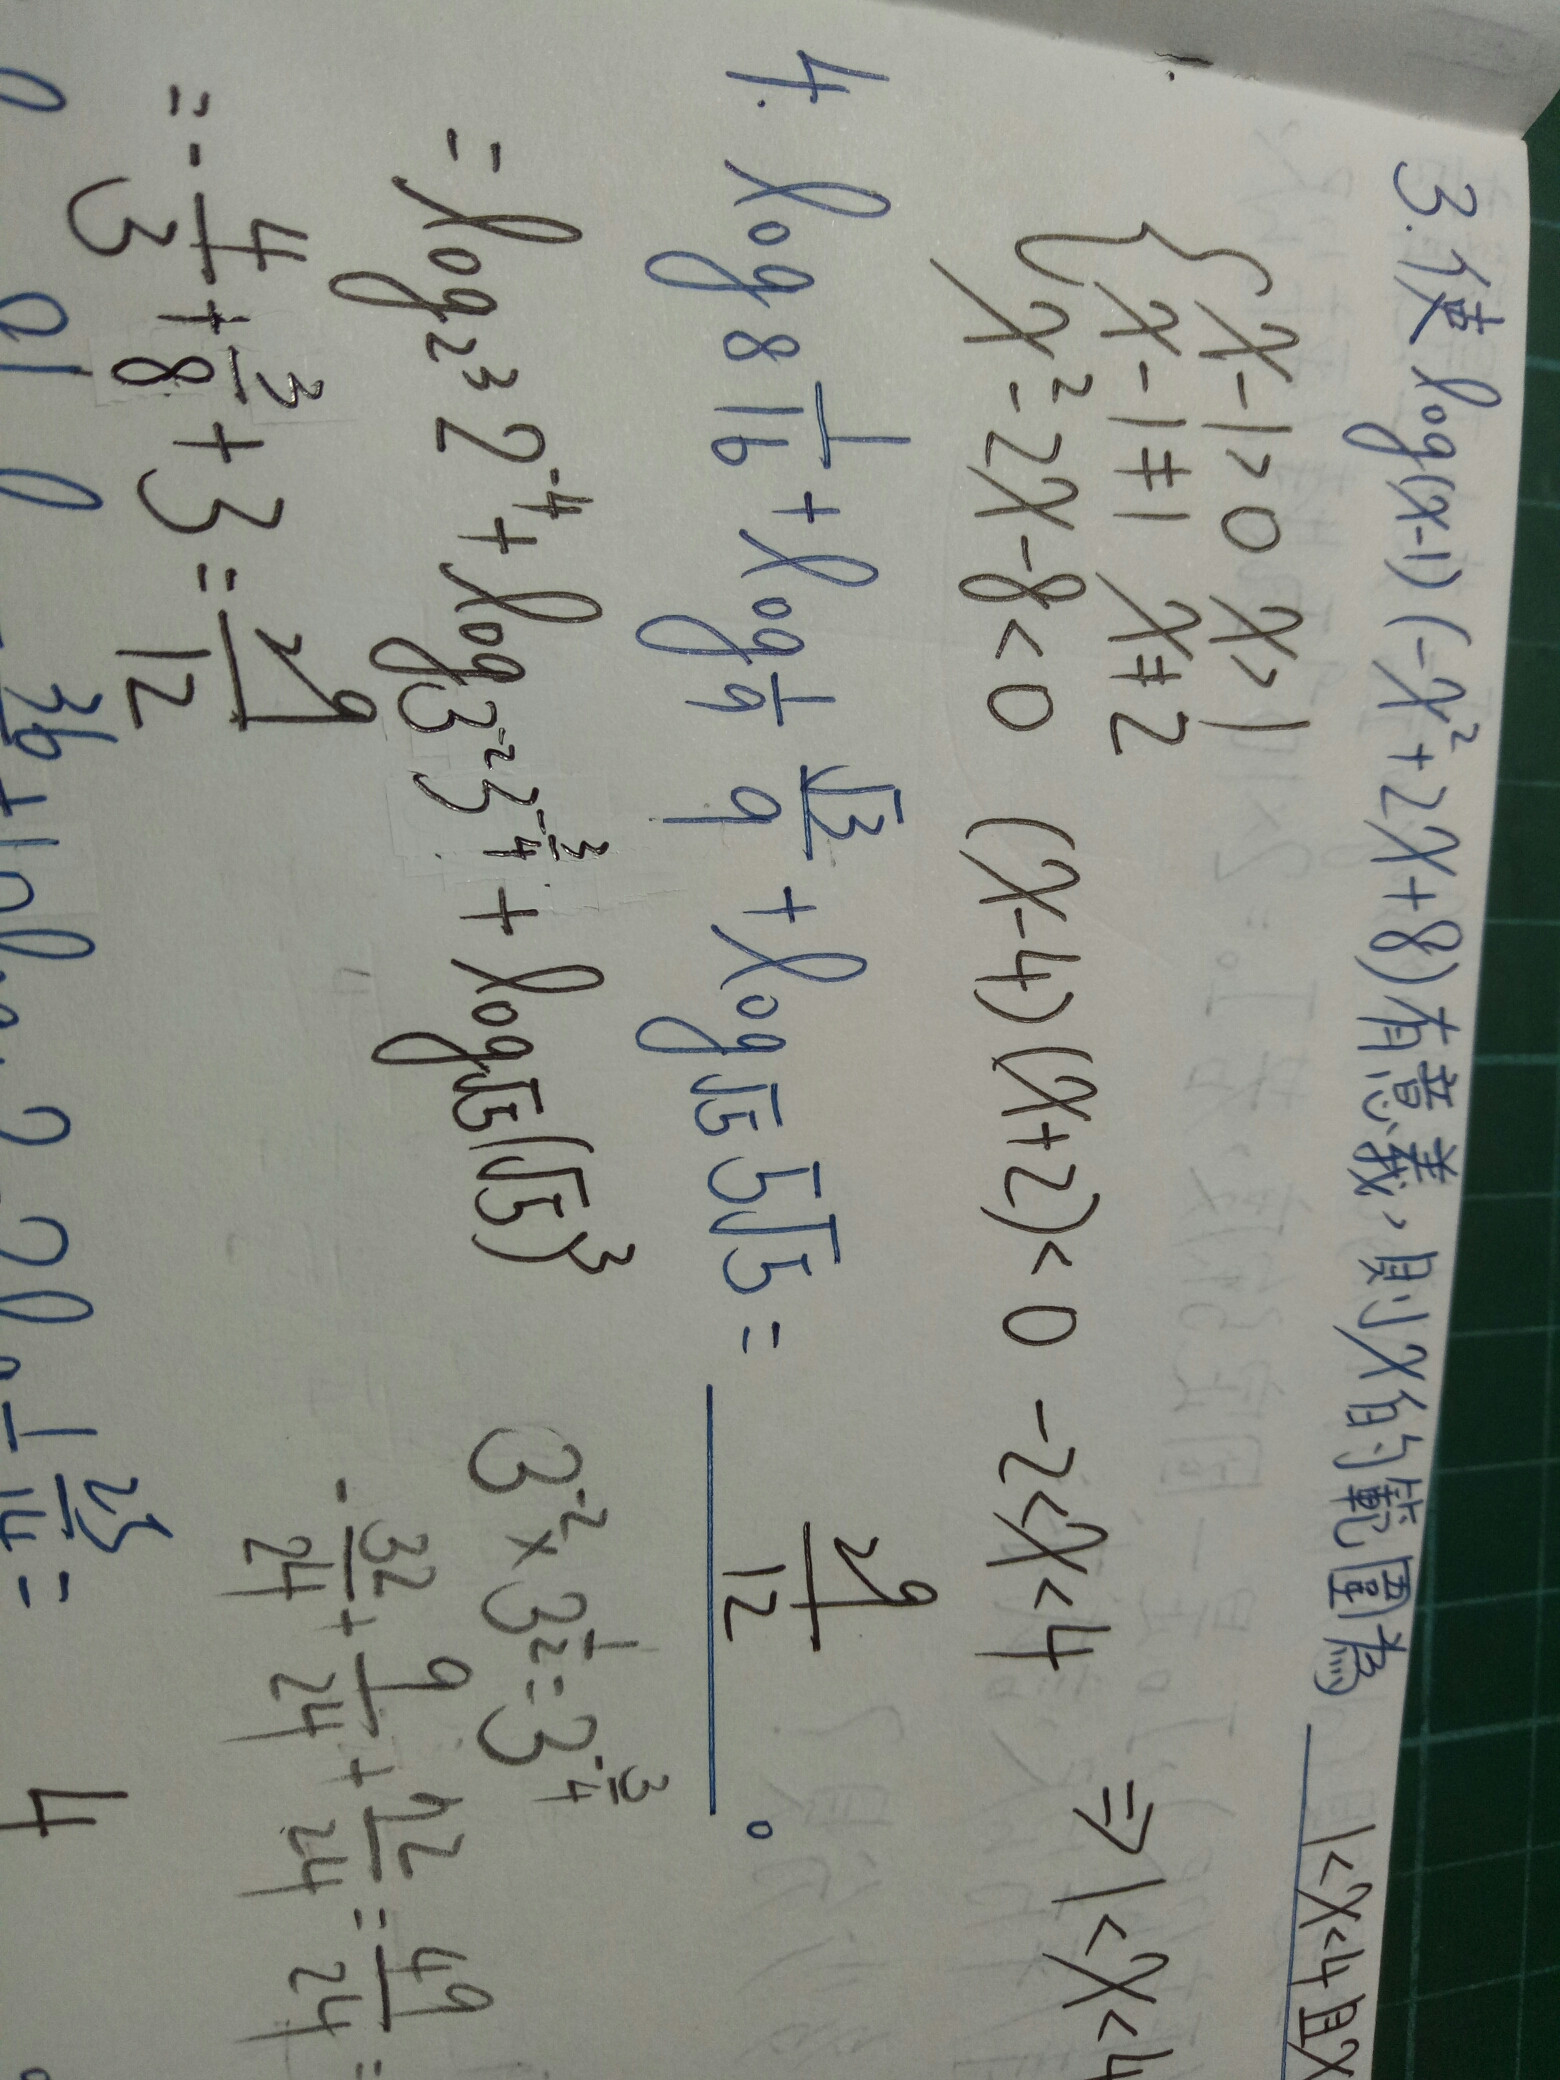 3. 使 log(x-1) (-x²+2x+8)有意義,則x的範圍為 1<x<4且x
{ x-1>0 x>1
x-1≠1 x≠2 ⇒ 1<x<4
x²-2x-8<0 (x-4)(x+2)<0 -2<x<4
4. log8 1/16 + log1/9 √3/9 + log√5 5√5 = 29/12 。
= log2³ 2⁻⁴ + log3⁻² 3^-3/4 + log√5(√5)³ 3⁻² x 3^1/2 = 3^-3/4
= -4/3 + 3/8 + 3 = 29/12 -32/24 + 9/24 + 72/24 = 49/24 =
4